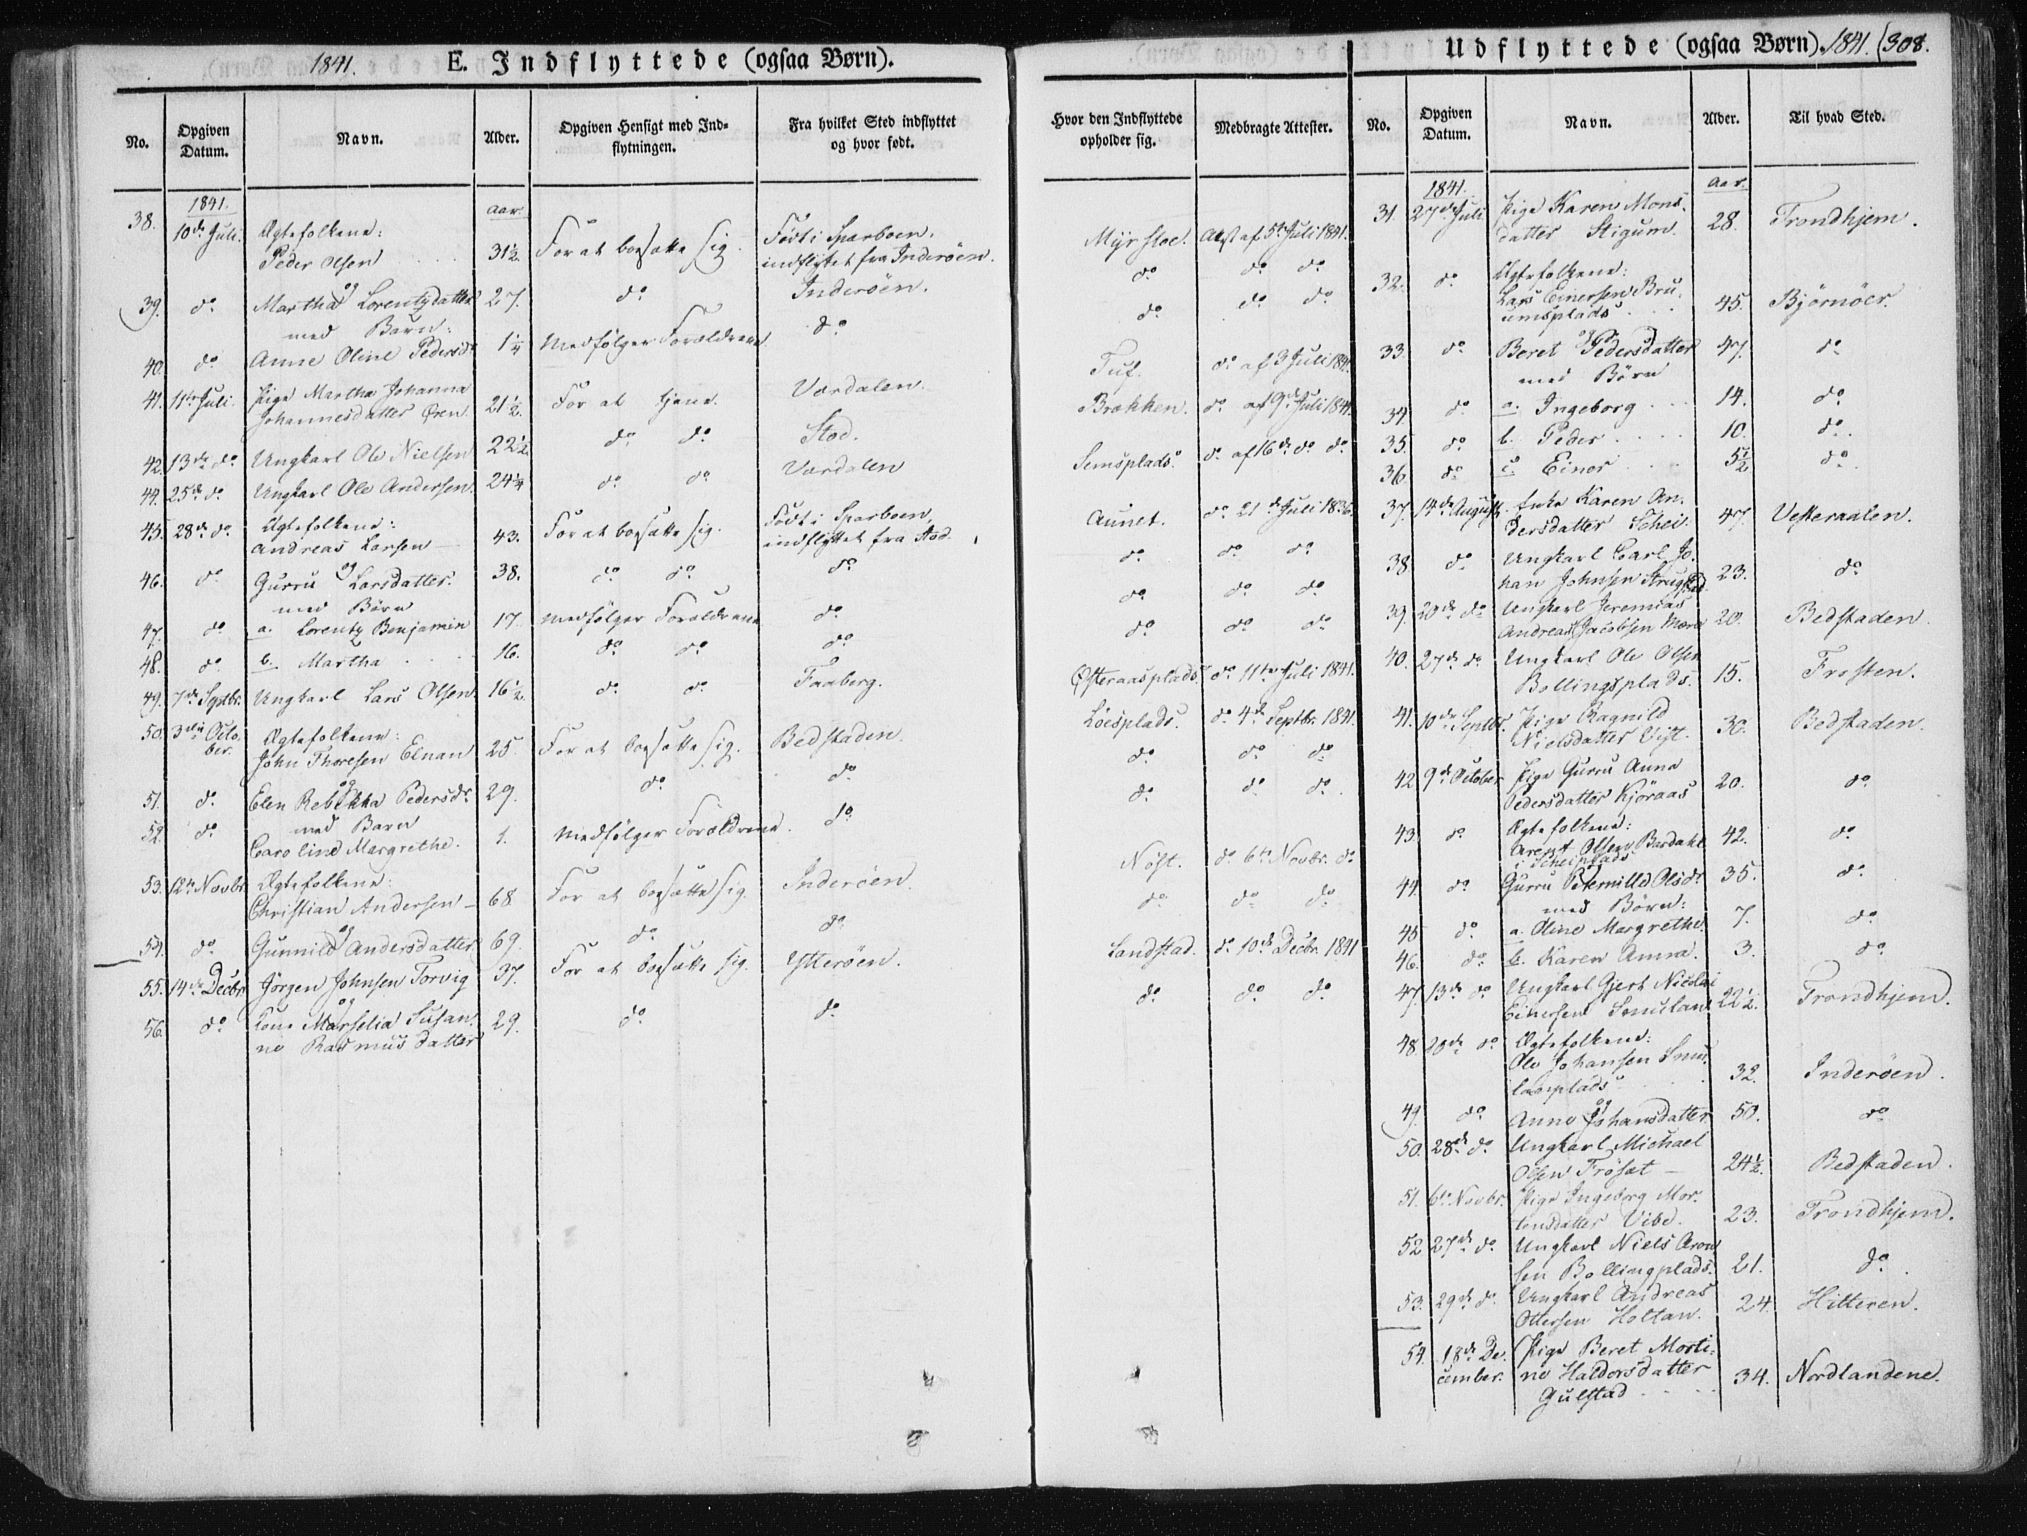 1841. E. Indflyttede (ogsaa Børn).
No. Opgiven Datum. Navn. Alder. Opgiven Hensigt med Indflytningen. Fra hvilket Sted indflyttet og hvor født.
1841. Aar.
38. 10de Juli. Ægtefolkene:
Peder Olsen 31½ For at bosætte sig. Født i Sparboen, indflyttet fra Inderöen.
og
39. do Martha Lorentzdatter 27. do Inderöen.
med Barn:
40. do Anne Oline Pedersdr 1¼ Medfölger Forældrene do
41. 11te Juli. Pige Martha Johanna
Johannesdatter Øren 21½. For at tjene. Værdalen.
42. 13de do Ungkarl Ole Nielsen 22½ do do Stod.
44. 25de do Ungkarl Ole Andersen. 24¼ do do Værdalen
45. 28de do Ægtefolkene:
Andreas Larsen 43. For at bosætte sig. Født i Sparboen, indflyttet fra Stod
og
46. do Gurru Larsdatter. 38. do do do
med Börn
47. do a. Lorentz Benjamin 17. Medfölger Forældrene do
48. do b. Martha 16. do do do
49. 7de Septbr. Ungkarl Lars Olsen 16½. do do Faaberg.
50. 3die October. Ægtefolkene:
John Thoresen Elnan 25. For at bosætte sig. Bedstaden.
og
51. do Elen Rebekka Pedersdr 29. do do
med Barn
52. do Caroline Margrethe. 1. Medfölger Forældrene. do
53. 12te Novbr. Ægtefolkene:
Christian Andersen 68 For at bosætte sig. Inderöen.
og
54. do Gunnild Andersdatter 69. do do
55. 14de Decbr. Jörgen Johnsen Torvig 37. For at bosætte sig. Ytteröen.
og
56. do Kone Marselia Susan-
ne Rasmusdatter 29. do do
Udflyttede (ogsaa Børn). 1841. (308.
Hvor den Indflyttede opholder sig. Medbragte Attester. No. Opgiven Datum. Navn. Alder. Til hvad Sted.
Att. af 5te Juli 1841.
do do do
do do do
Tuf. do af 3 Juli 1841.
Brækken. do af 9de Juli 1841.
Semsplads. do af 16de do do
Aunet. do 21de Juli 1836.
do do do
do do do
do do do
Østeraasplads. do 11te Juli 1841.
Löesplads. do 4de Septbr. 1841.
do do do
do do do
Nöst. do 6te Novbr. do
do do do
Sandstad. do 10de Decbr. 1841
do do do
1841. Aar
31. 27de Juli Pige Karen Mons-
datter Stigum. 28. Trondhjem.
32. do Ægtefolkene:
Lars Einersen Bru-
emsplads 45. Björnöer.
og
33. do Beret Pedersdatter 47. do
med Börn
34 do a. Ingeborg 14. do
35. do b. Peder 10. do
36 do c. Einer 5½ do
37. 14de August. Enke Karen An-
dersdatter Schei. 47. Vesteraalen.
38 do Ungkarl Carl Jo-
han Johnsen 23. do
39. 20de do Ungkarl Jeremias
Andreas Jacobsen Mære 20. Bedstaden.
40. 27de do Ungkarl Ole Olsen
Bollingsplads. 15. Frosten.
41. 10de Septbr. Pige Ragnild
Nielsdatter Vist. 30. Bedstaden.
42 9de October Pige Gurru Anna
Pedersdatter Kjöraas 20. do
43. do Ægtefolkene:
Arent Olsen Bardahl
i Scheiplads 42. do
44. do Gurru Peternille Olsdr 35. do
med Börn:
45 do a. Oline Margrethe 7. do
46. do b. Karen Anna. 3. do
47 13de do Ungkarl Gjert Nicolai
Einersen 22½. Trondhjem.
48 20de do Ægtefolkene:
Ole Johansen
32. Inderöen.
og
49. do Anne Johansdatter 50. do
50. 28de do Ungkarl Michael
Olsen Fröset 24½. Bedstaden.
51. 6te Novbr. Pige Ingeborg Mor-
tensdatter Vibe. 23. Trondhjem.
52 27de do Ungkarl Niels Aron-
sen Bollingplads. 21. do
53. 29de do Ungkarl Andreas
Ottersen Holtan. 24. Hitteren.
54. 18de De- Pige Beret Morti-
cember. ne Haldorsdatter
Gulstad 34. Nordlandene.